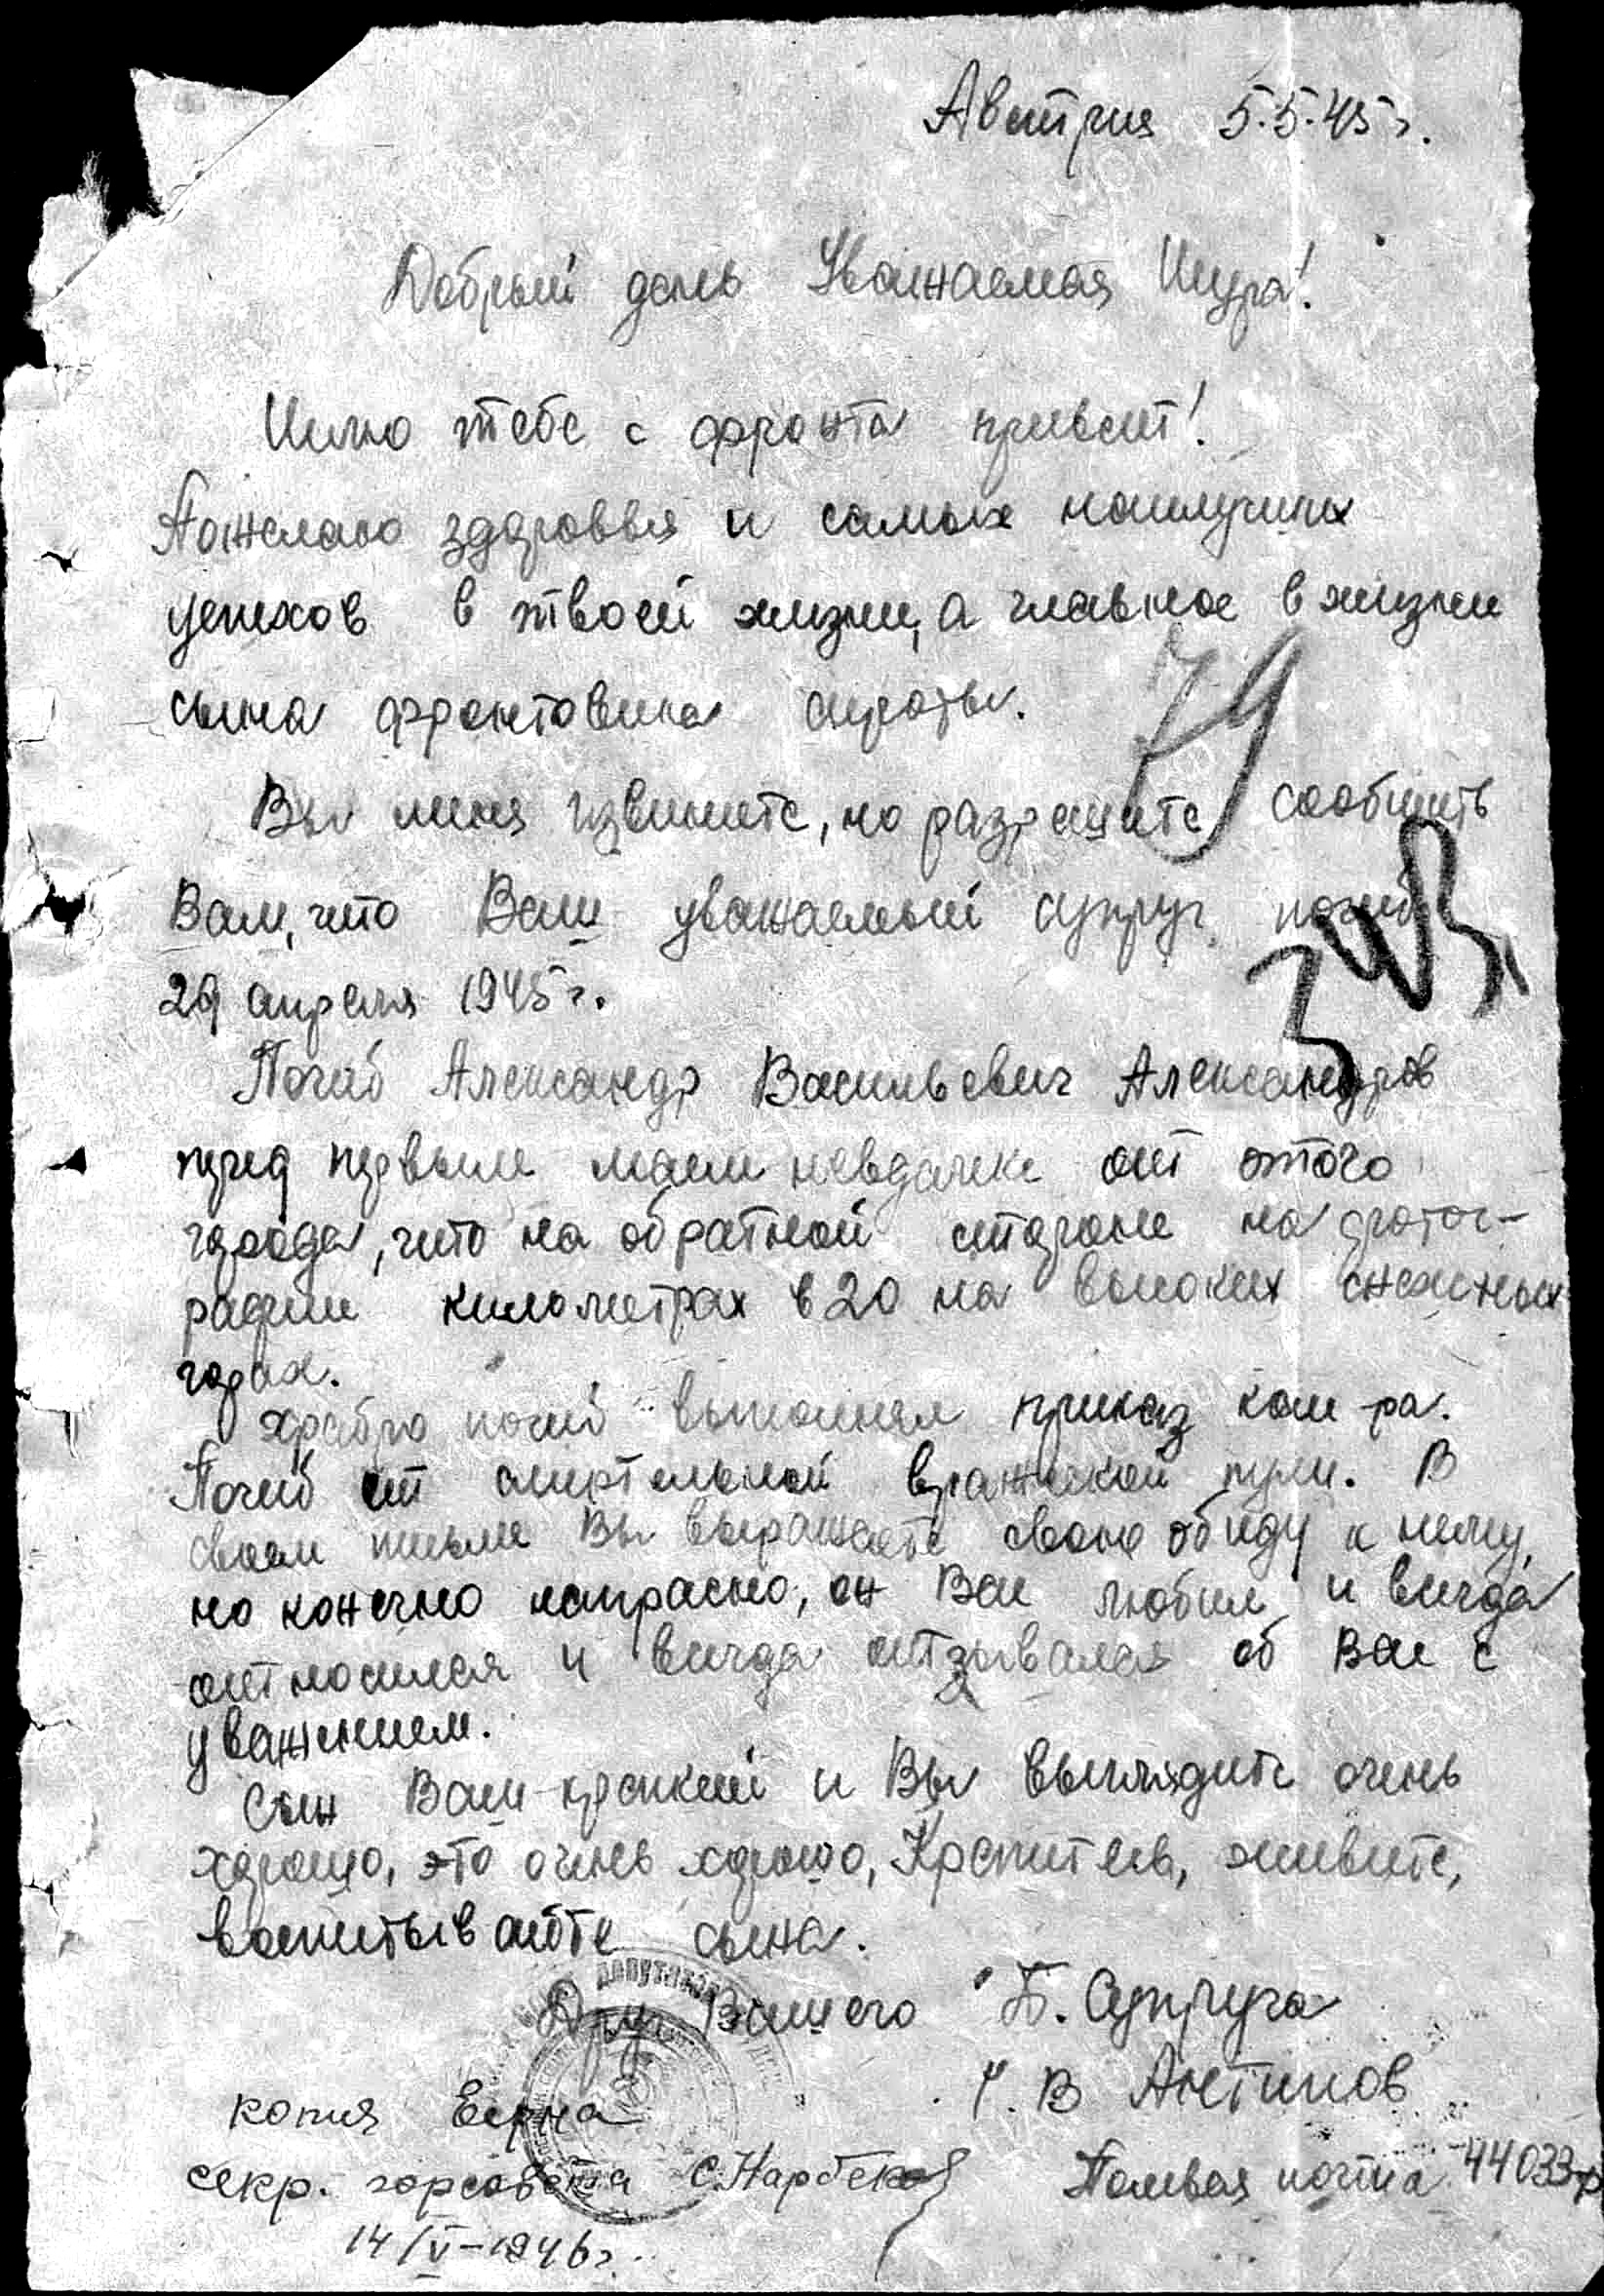 Австрия 5.5.45 г.
Добрый день Уважаемая Шура!
Шлю тебе с фронта привет!
Пожелаю здоровья и самых наилучших
успехов в твоей жизни, а главное в жизни
сына фронтовика сироты.
79
Вы меня извините, но разрешите сообщить
Вам, что Ваш уважаемый супруг погиб
29 апреля 1945 г.
Погиб Александр Васильевич Александров
перед первым маем невдалеке от этого
города, что на обратной стороне на фотог-
рафии километрах в 20 на высоких снежных
горах.
Храбро погиб выполняя приказ ком-ра.
Погиб от смертельной вражеской пули. В
своем письме Вы выражаете свою обиду к нему,
но конечно напрасно, он Вас любил и всегда
относился и всегда отзывался об Вас с
уважением.
Сын Ваш крепкий и Вы выглядите очень
хорошо, это очень хорошо, Крепитесь, живите,
воспитывайте сына.
Друг Вашего Б. Супруга
В Антипов
копия Верна
секр. горсовета
Полевая почта 44033
14/V-1946 г.